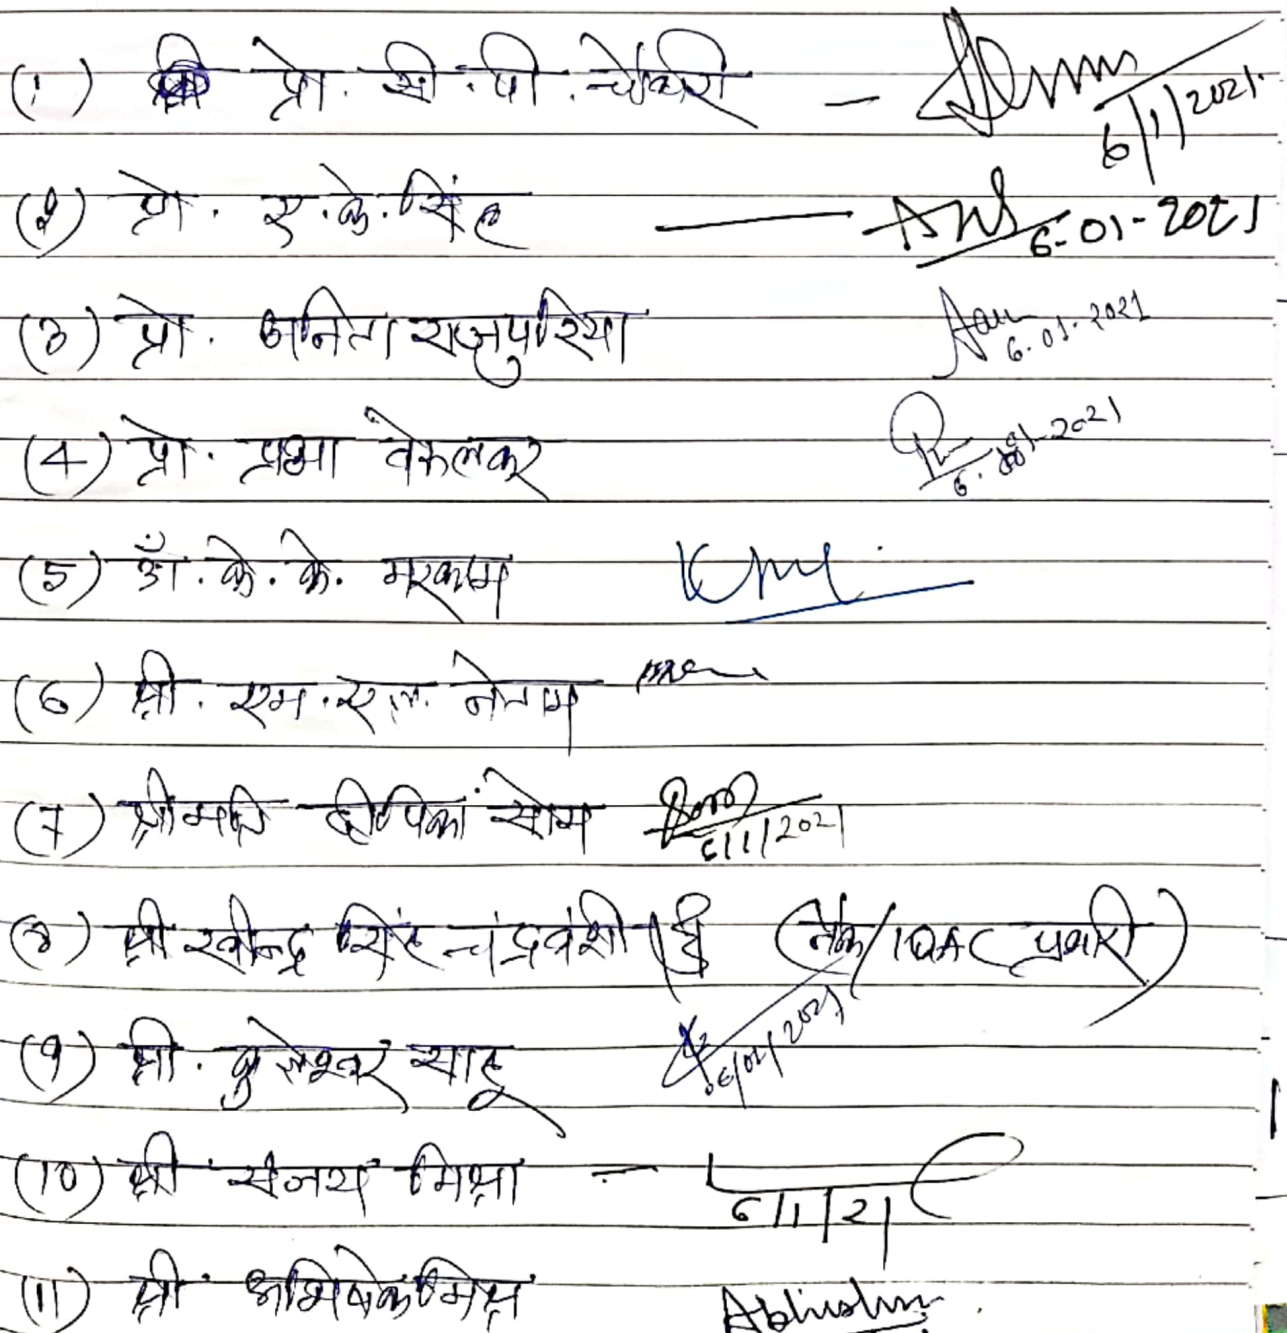 (1) प्रो. सी. पी. चौधरी - 6/1/2021
(2) प्रो. ए. के. सिंह 6-01-2021
(3) प्रो. अनिता राजपुरिया 6.01.2021
(4) प्रो. प्रभा वेरुलकर 6.01-2021
(5) डॉ. के. के. मरकाम
(6) श्री. एम. एल. नेताम
(7) श्रीमति दीपिका सोम 6/1/2021
(8) श्री रवीन्द्र सिंह चंद्रवंशी (नैक/IQAC प्रभारी)
(9) श्री. कुलेश्वर साहू 06/01/2021
(10) श्री संजय मिश्रा - 6/1/21
(11) श्री अभिषेक मिश्रा